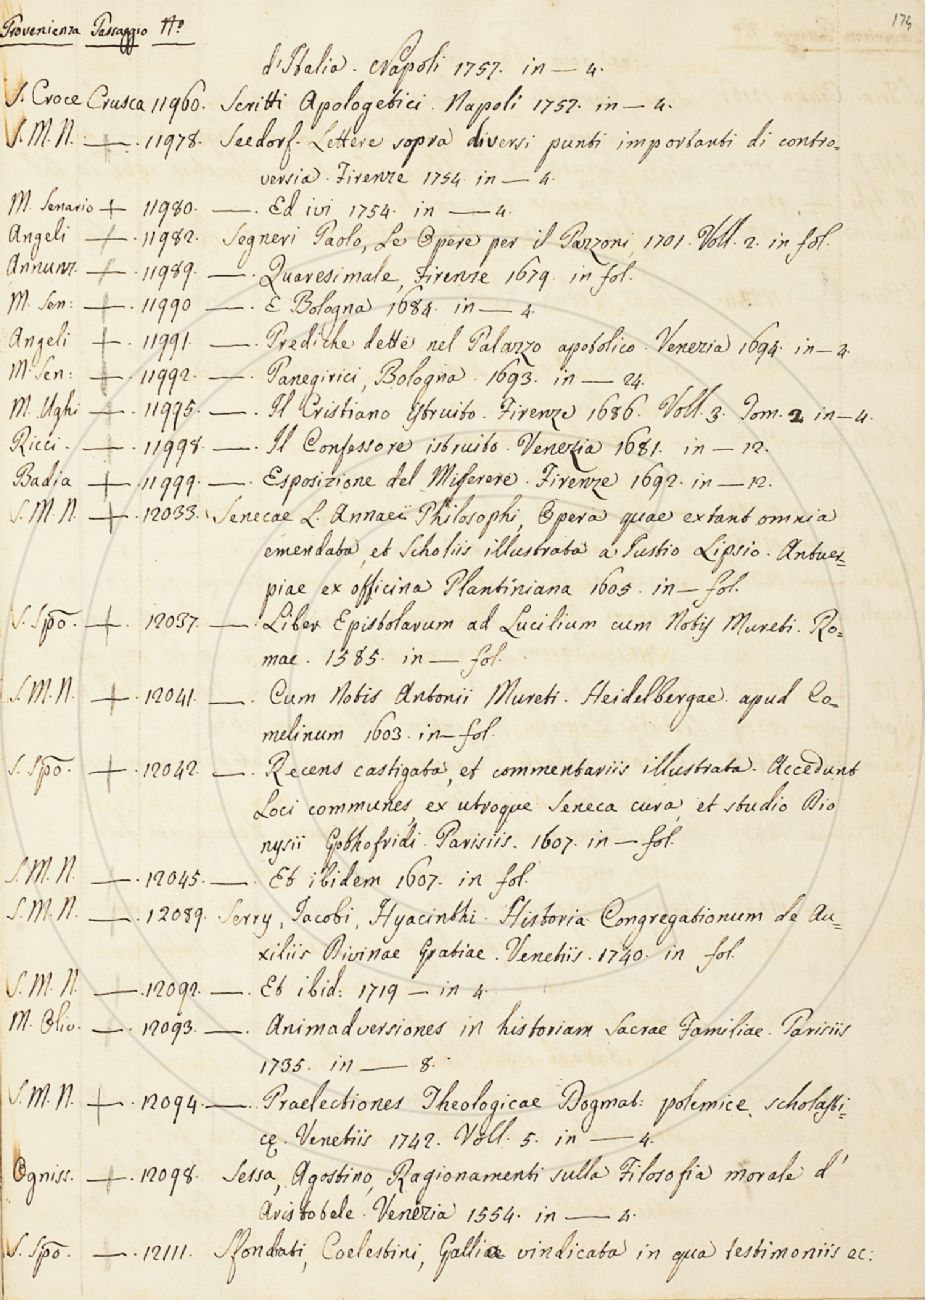 Provenienza Passaggio N.º 174
d'Italia. Napoli 1757. in — 4.
S. Croce Crusca 11960. Scritti Apologetici. Napoli 1757. in — 4.
S. M. N. —. 11978. Seedorf. Lettere sopra diversi punti importanti di contro=
versia. Firenze 1754. in — 4.
M. Senario + 11980. —. Ed ivi 1754. in — 4.
Angeli +. 11982. Segneri Paolo, Le Opere per il Pazzoni, 1701. Voll. 2. in fol.
Annunz. +. 11989. —. Quaresimale, Firenze 1679. in fol.
M. Sen: +. 11990 —. E Bologna 1684. in — 4.
Angeli +. 11991. —. Prediche dette nel Palazzo apostolico. Venezia 1694. in — 4.
M. Sen: +. 11992. —. Panegirici, Bologna. 1693. in — 24.
M. Ughi +. 11995. —. Il Cristiano istruito. Firenze 1686. Voll. 3. Tom. 2 in — 4.
Ricci. +. 11998. —. Il Confessore istruito. Venezia 1681. in — 12.
Badia +. 11999. —. Esposizione del Miserere. Firenze 1692. in — 12.
S. M. N. +. 12033. Senecae L. Annaei Philosophi, Opera quae extant omnia
emendata, et Scholiis illustrata a Justio Lipsio. Antuer=
piae ex officina Plantiniana 1605. in — fol.
S. Spõ. +. 12037. —. Liber Epistolarum ad Lucilium cum Notis Mureti. Ro=
mae. 1585. in — fol.
S. M. N. +. 12041. —. Cum Notis Antonii Mureti. Heidelbergae. apud Co=
melinum 1603. in — fol.
S. Spõ. +. 12042. —. Recens castigata, et commentariis illustrata. Accedunt
Loci communes, ex utroque Seneca cura, et studio Dio
nysii Gothofridi. Parisiis. 1607. in — fol.
S. M. N. —. 12045. —. Et ibidem 1607. in fol.
S. M. N. —. 12089. Serry, Jacobi, Hyacinthi. Historia Congregationum de Au=
xiliis Divinae Gratiae. Venetiis. 1740. in fol.
S. M. N. —. 12092. —. Et ibid: 1719 — in 4.
M. Oliv. —. 12093. —. Animadversiones in historiam Sacrae Familiae. Parisiis
1735. in — 8.
S. M. N. +. 12094. —. Praelectiones Theologicae Dogmat: polemice, scholasti=
cę. Venetiis 1742. Voll. 5. in — 4.
Ogniss. +. 12098. Sessa, Agostino, Ragionamenti sulla Filosofia morale d'
Aristotele. Venezia 1554. in — 4.
S. Spõ. —. 12111. Sfondati, Coelestini, Galliae vindicata in qua testimoniis ec: